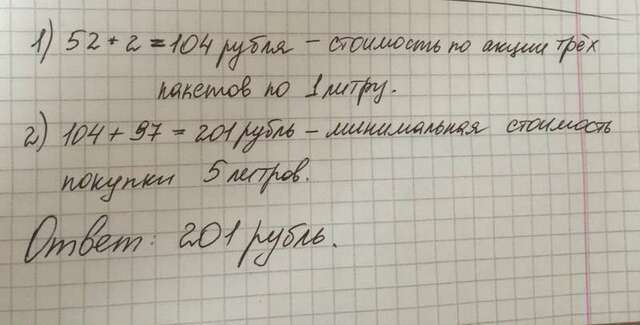 1) 52 + 2 = 104 рубля – стоимость по акции трёх
пакетов по 1 литру.
2) 104 + 97 = 201 рубль – минимальная стоимость
покупки 5 литров.
Ответ: 201 рубль.